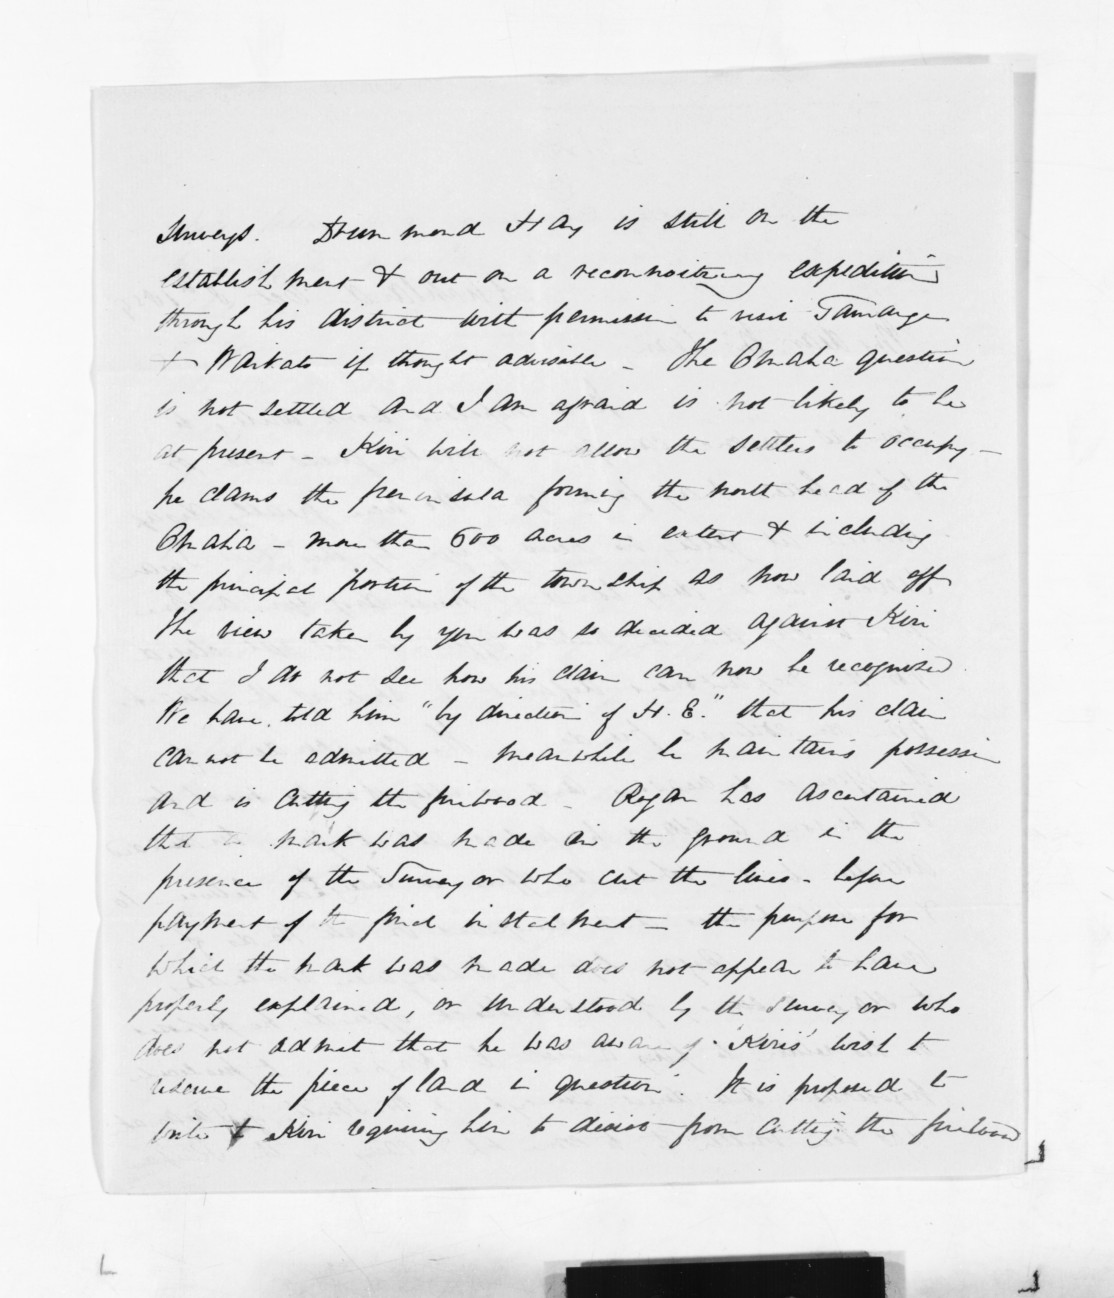 Surveys. Drummond Hay is still on the
establishment & out on a reconnoitring expedition
through his district with permission to visit Tauranga
& Waikato if thought advisable - The Omaha question
is not settled and I am afraid is not likely to be
at present - Kiri will not allow the settlers to occupy -
he claims the peninsula forming the north head of the
Omaha - more than 600 acres in extent & including
the principal portion of the township as now laid off
The view taken by you was so decided against Kiri
that I do not see how his claim can now be recognised
We have told him "by direction of H.E." that his claim
cannot be admitted - meanwhile he maintains possession
and is cutting the firewood - Rogan has ascertained
that a mark was made in the ground in the
presence of the Surveyor who cut the lines - before
payment of the final instalment - the purpose for
which the mark was made does not appear to have
properly explained, or understood by the Surveyor who
does not admit that he was aware of Kiri's wish to
reserve the piece of land in question. It is proposed to
write to Kiri requiring him to desist from cutting the firewood